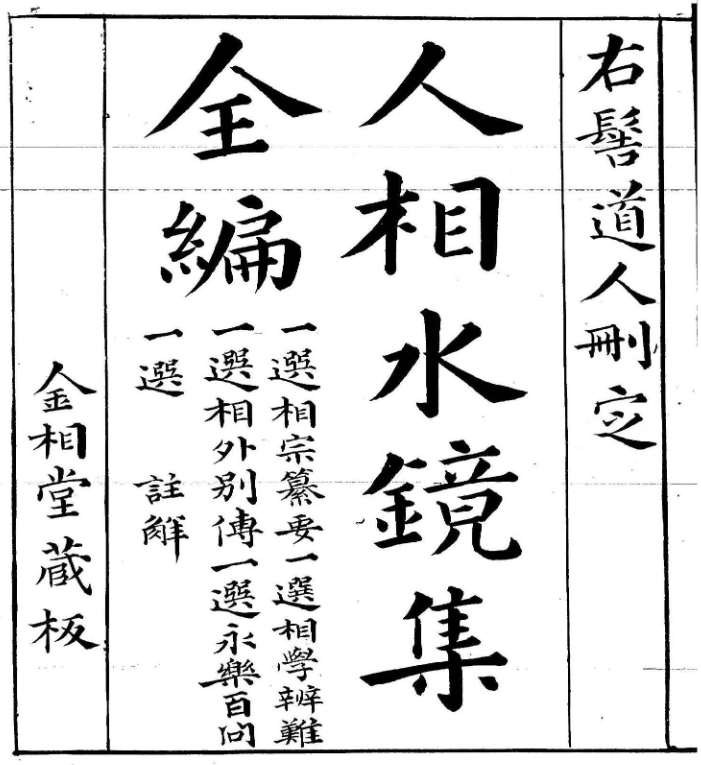 右髻道人刪定
人相水鏡集
全編
一選相宗纂要一選相學辨難
一選相外別傳一選永樂百问
一選 註觧
金相堂蔵板